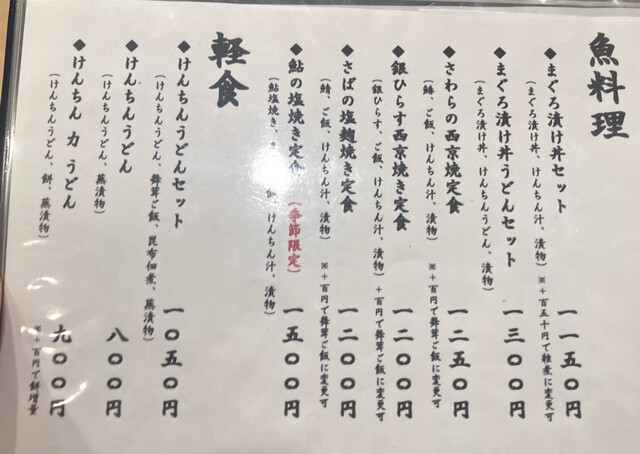 魚料理
◆まぐろ漬け丼セット 一一五〇円
（まぐろ漬け丼、けんちん汁、漬物）※＋百五十円で雑煮に変更可
◆まぐろ漬け丼うどんセット 一三〇〇円
（まぐろ漬け丼、けんちんうどん、漬物）
◆さわらの西京焼定食 一二五〇円
（鰆、ご飯、けんちん汁、漬物）※＋百円で舞茸ご飯に変更可
◆銀ひらす西京焼き定食 一二〇〇円
（銀ひらす、ご飯、けんちん汁、漬物）＋百円で舞茸ご飯に変更可
◆さばの塩麹焼き定食 一二〇〇円
（鯖、ご飯、けんちん汁、漬物）※＋百円で舞茸ご飯に変更可
◆鮎の塩焼き定食（季節限定） 一五〇〇円
（鮎塩焼き、 飯、けんちん汁、漬物）
軽食
◆けんちんうどんセット 一〇五〇円
（けんちんうどん、舞茸ご飯、昆布佃煮、蕪漬物）
◆けんちんうどん 八〇〇円
（けんちんうどん、蕪漬物）
◆けんちん力うどん 九〇〇円
（けんちんうどん、餅、蕪漬物）
※＋百円で餅増量